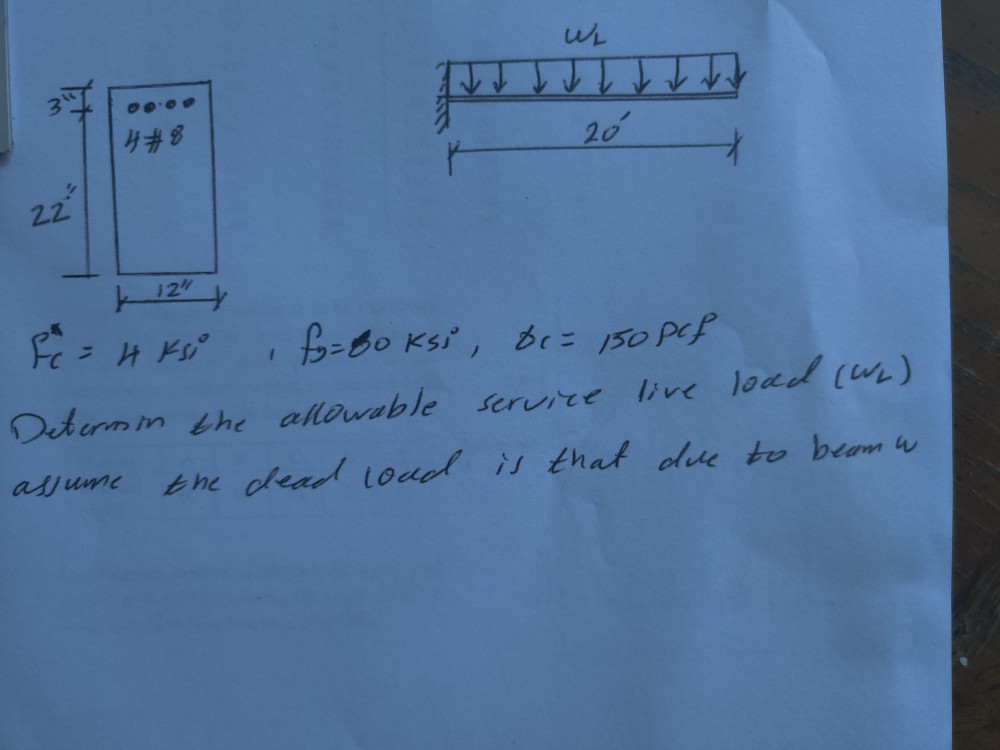 W_L
3"
4#8
20'
22"
12"
f'c = 4 Ksi , fy=60 Ksi, γc = 150 Pcf
Determin the allowable service live load (W_L)
assume the dead load is that due to beam w